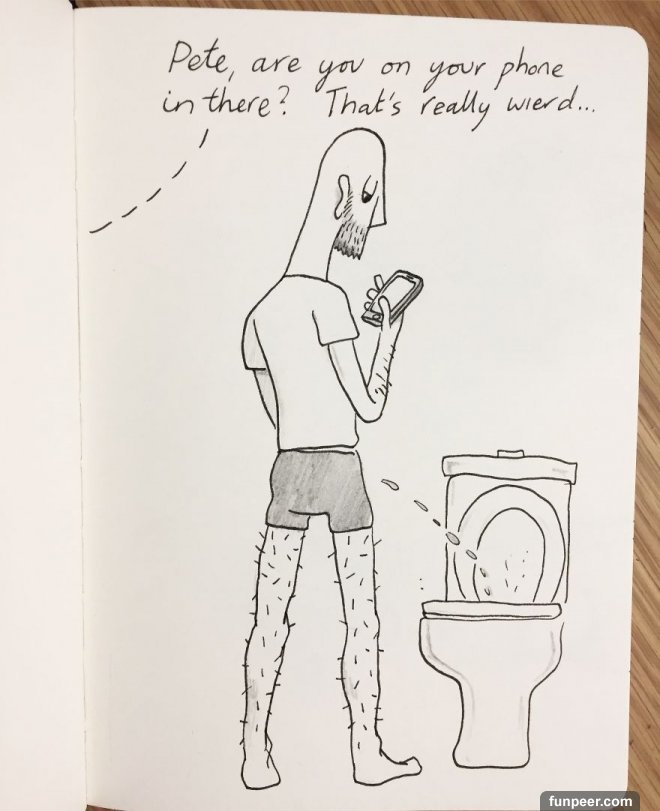 Pete, are you on your phone
in there? That's really wierd...
funpeer.com